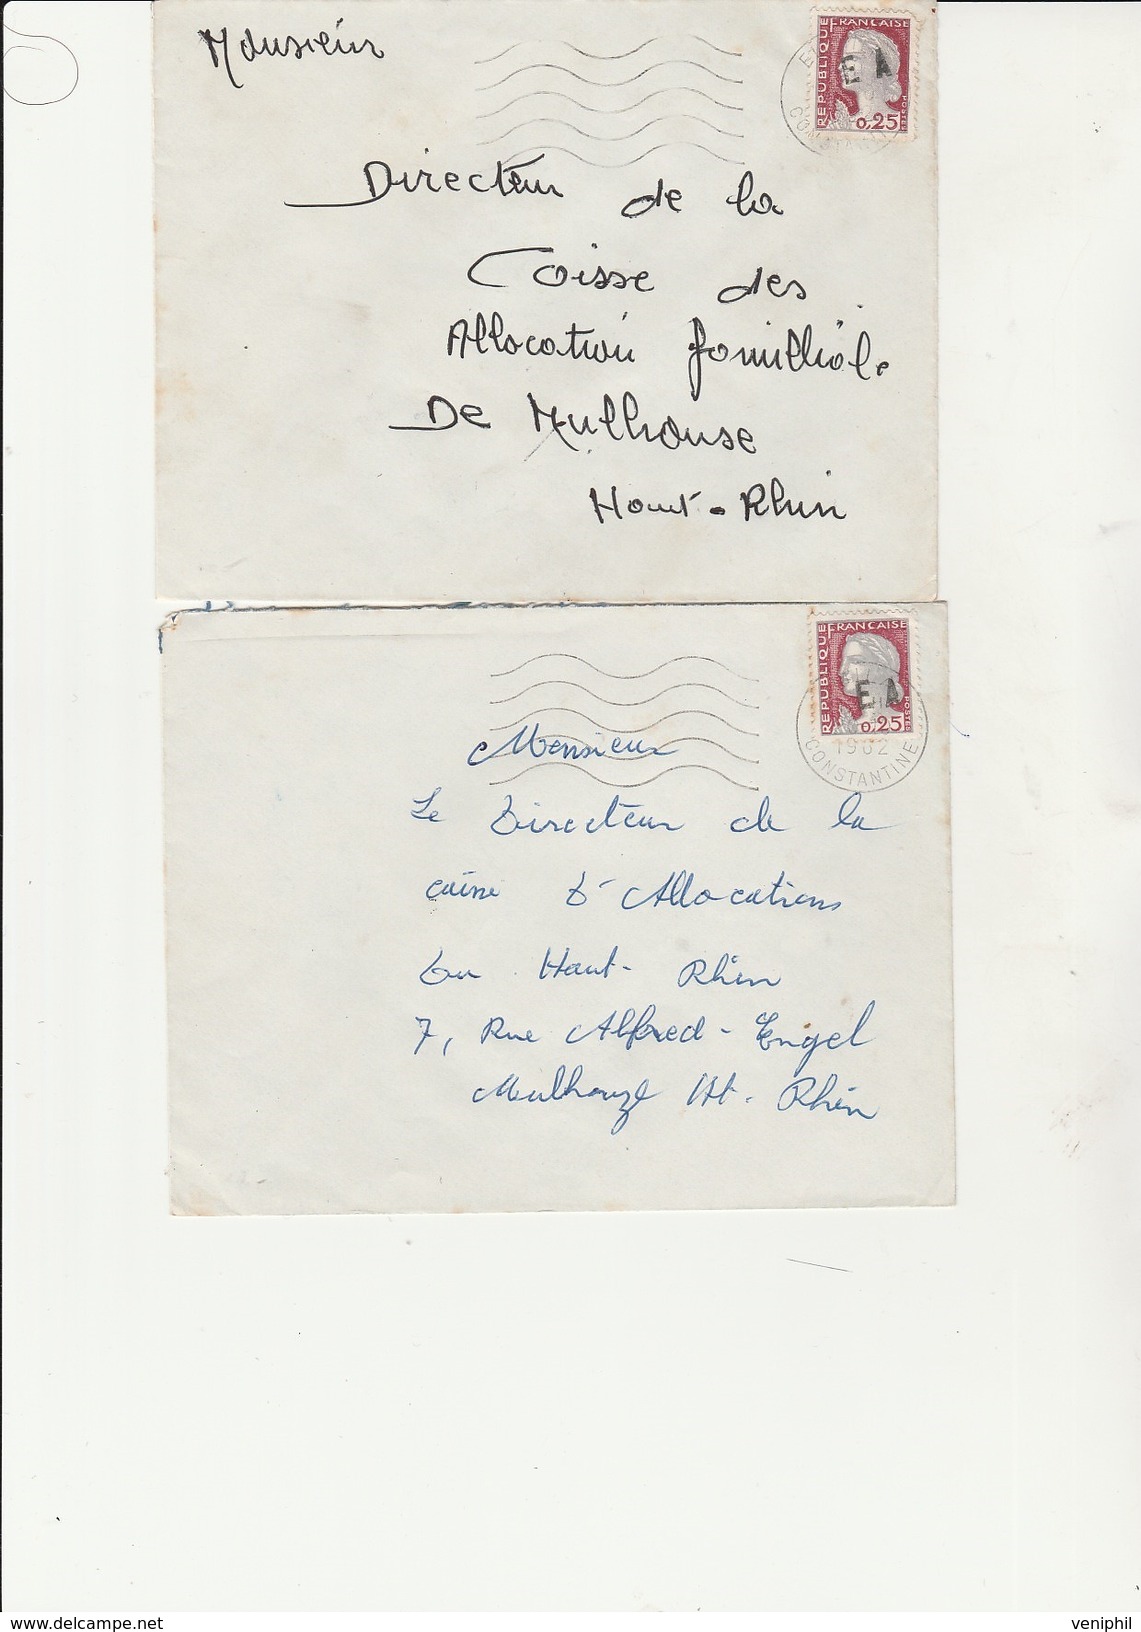 Monsieur
RÉPUBLIQUE FRANÇAISE
E A
0,25
POSTES
Directeur de la
Caisse des
Allocation familliale
De Mulhouse
Haut-Rhin
RÉPUBLIQUE FRANÇAISE
E A
0,25
POSTES
1962
CONSTANTINE
Monsieur
Le Directeur de la
caisse d'Allocations
du Haut-Rhin
7, Rue Alfred-Engel
Mulhouze Ht-Rhin
www.delcampe.net
veniphil